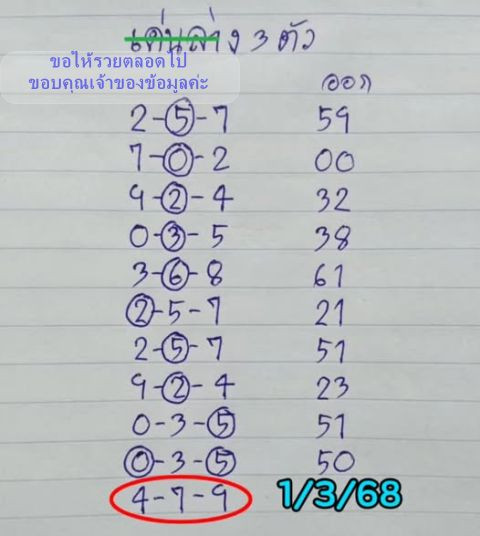 เด่นล่าง 3 ตัว
ขอให้รวยตลอดไป
ขอบคุณเจ้าของข้อมูลค่ะ
ออก
2-5-7 59
7-0-2 00
9-2-4 32
0-3-5 38
3-6-8 61
2-5-7 21
2-5-7 51
9-2-4 23
0-3-5 51
0-3-5 50
4-7-9 1/3/68